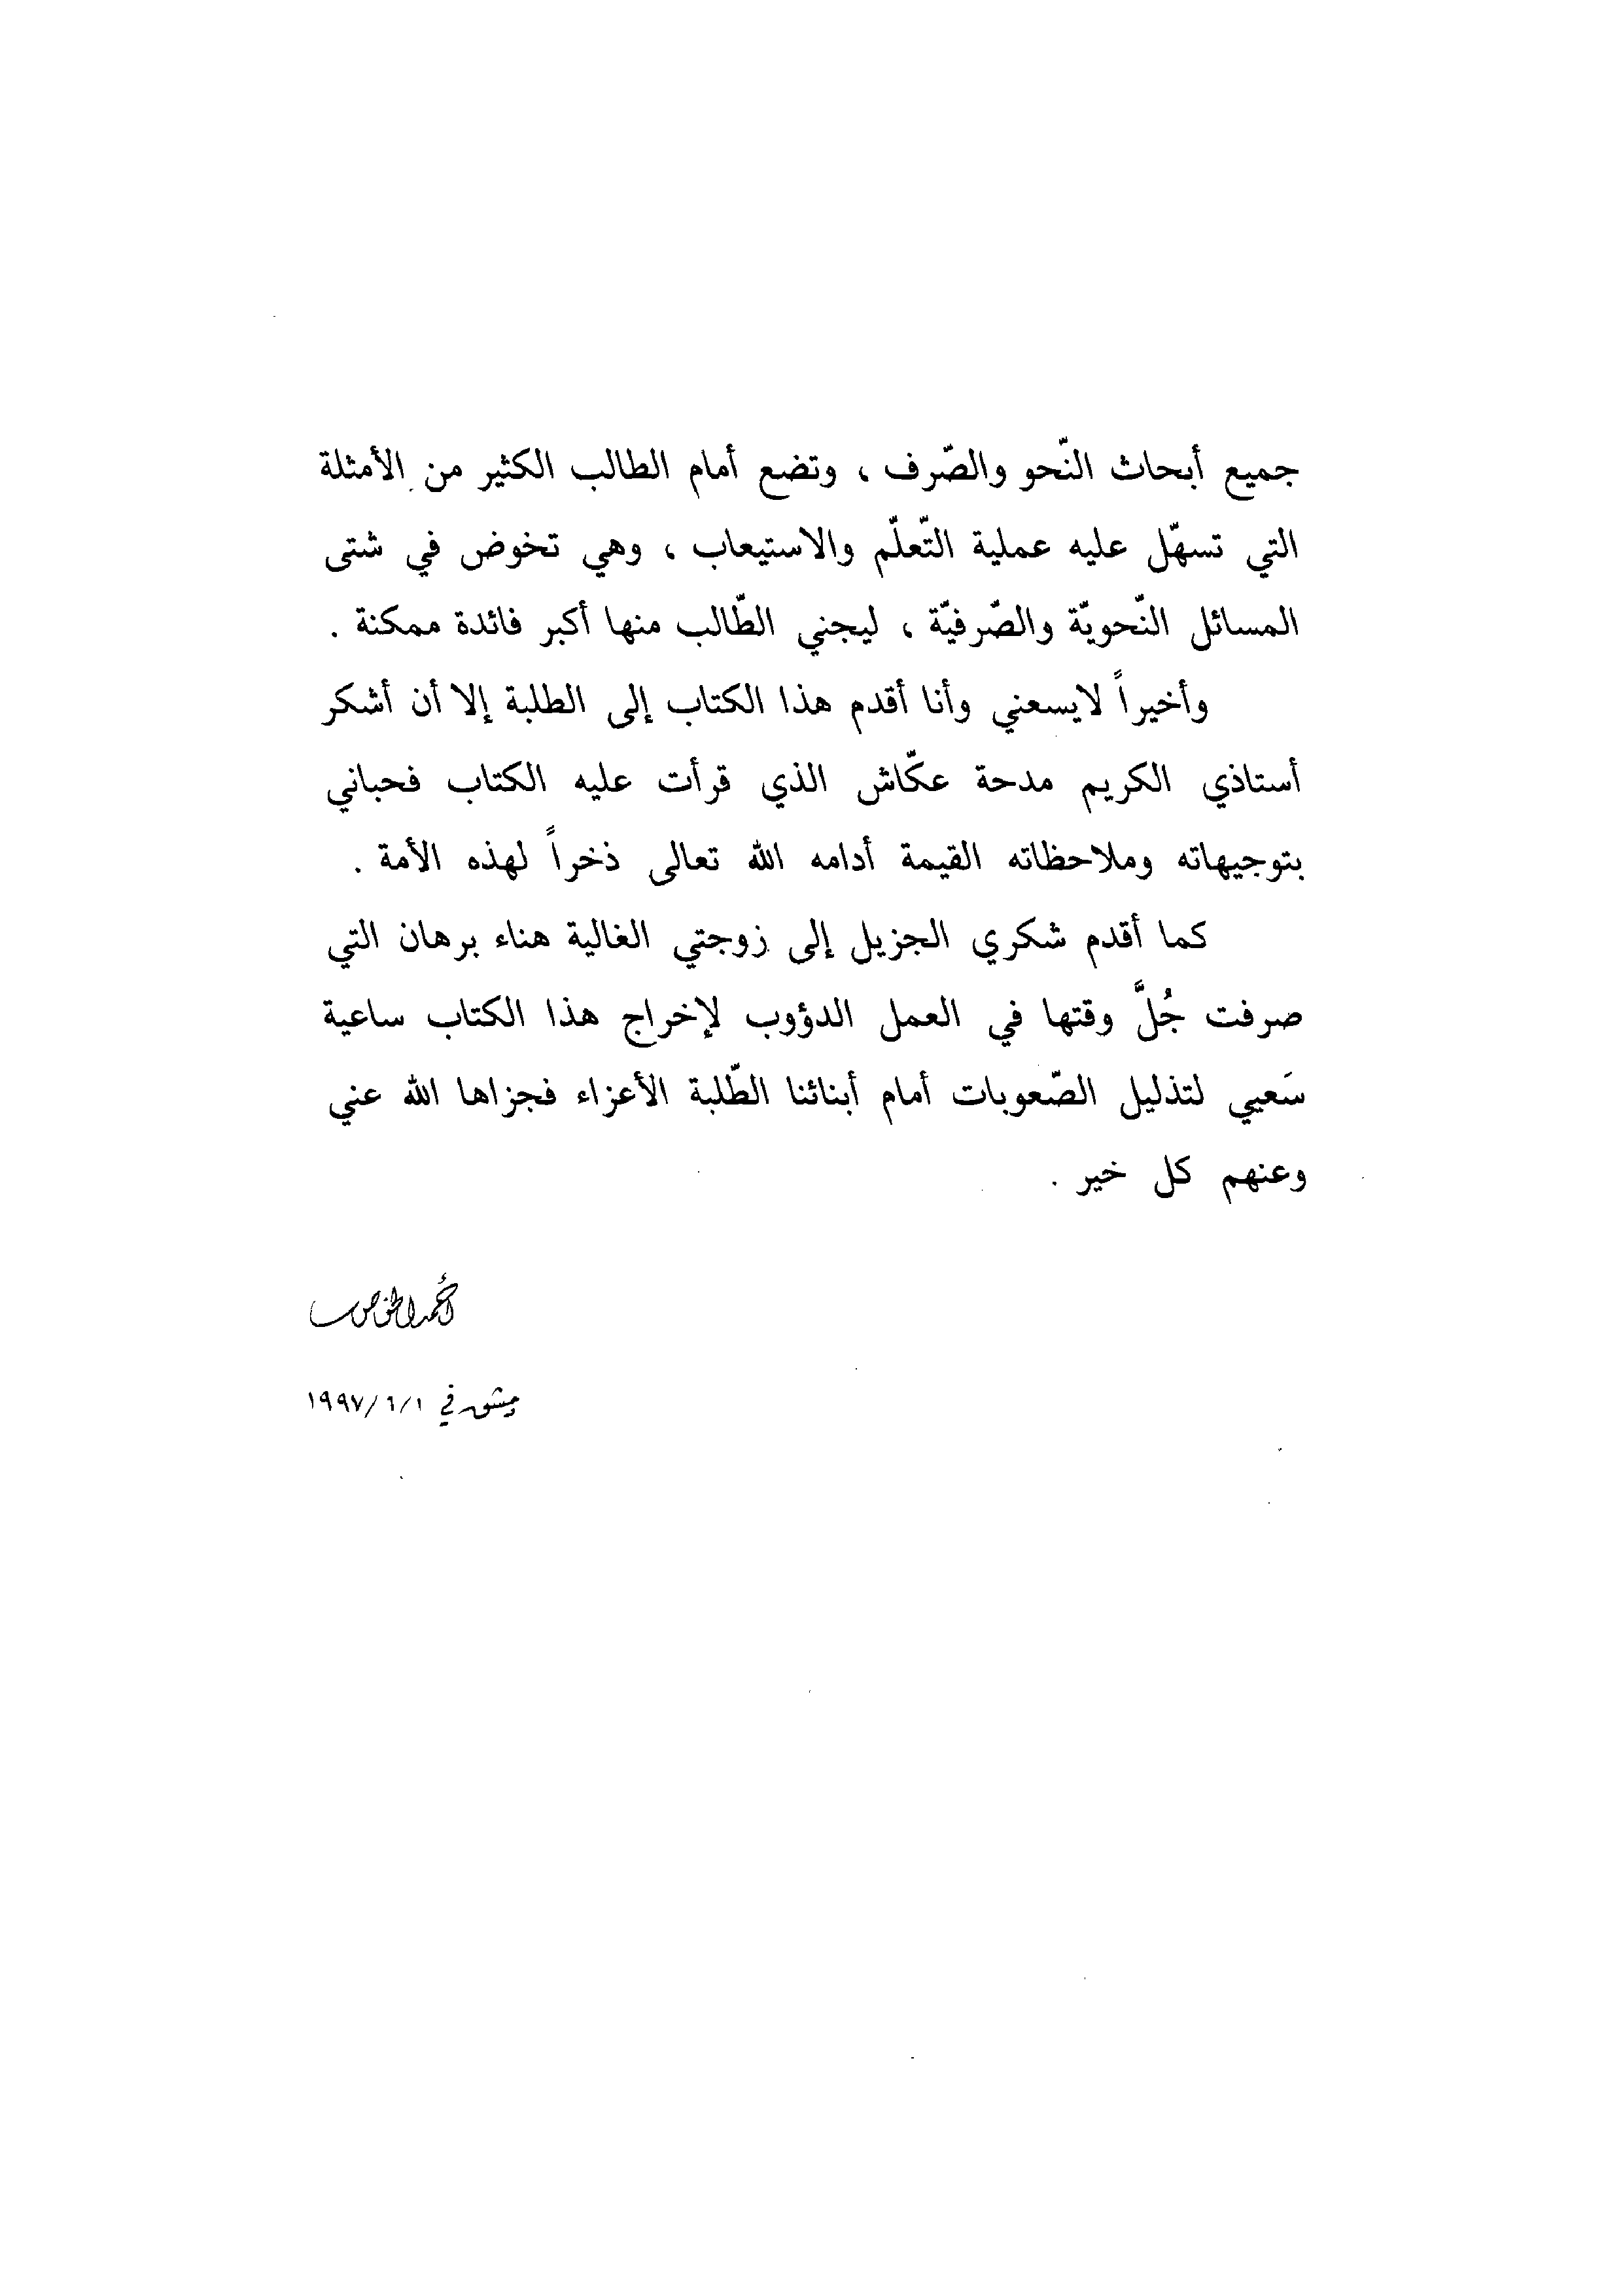 جميع أبحاث النّحو والصّرف ، وتضع أمام الطالب الكثير من الأمثلة
التي تسهّل عليه عملية التّعلّم والاستيعاب ، وهي تخوض في شتى
المسائل النّحويّة والصّرفيّة ، ليجني الطّالب منها أكبر فائدة ممكنة .
وأخيراً لايسعني وأنا أقدم هذا الكتاب إلى الطلبة إلا أن أشكر
أستاذي الكريم مدحة عكّاش الذي قرأت عليه الكتاب فحباني
بتوجيهاته وملاحظاته القيمة أدامه الله تعالى ذخراً لهذه الأمة .
كما أقدم شكري الجزيل إلى زوجتي الغالية هناء برهان التي
صرفت جُلَّ وقتها في العمل الدؤوب لإخراج هذا الكتاب ساعية
سَعيي لتذليل الصّعوبات أمام أبنائنا الطّلبة الأعزاء فجزاها الله عني
وعنهم كل خير .
أحمد الخوص
دمشق في ١/٦/١٩٩٧